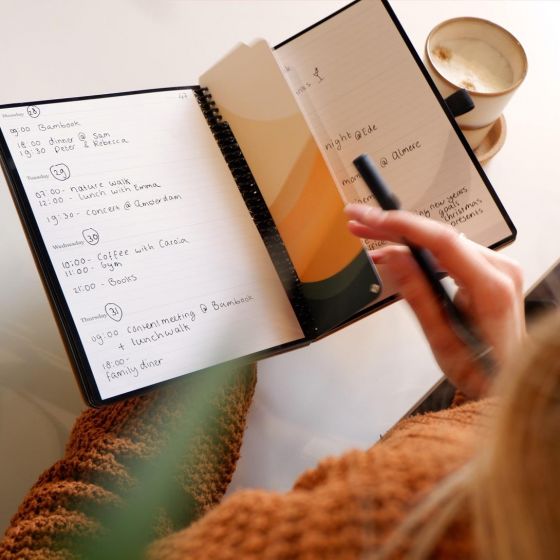 Monday 28
09:00 Bambook
18:00 dinner @ Sam
19:30 Peter & Rebecca
Tuesday 29
07:00 - nature walk
12:00 - lunch with Emma
19:30 - concert @ Amsterdam
Wednesday 30
10:00 - Coffee with Carola
11:00 - Gym
21:00 - Books
Thursday 31
09:00 content meeting @ Bambook
+ lunchwalk
18:00 -
family diner
night @ Ede
@ Almere
new years
goals
Christmas
presents